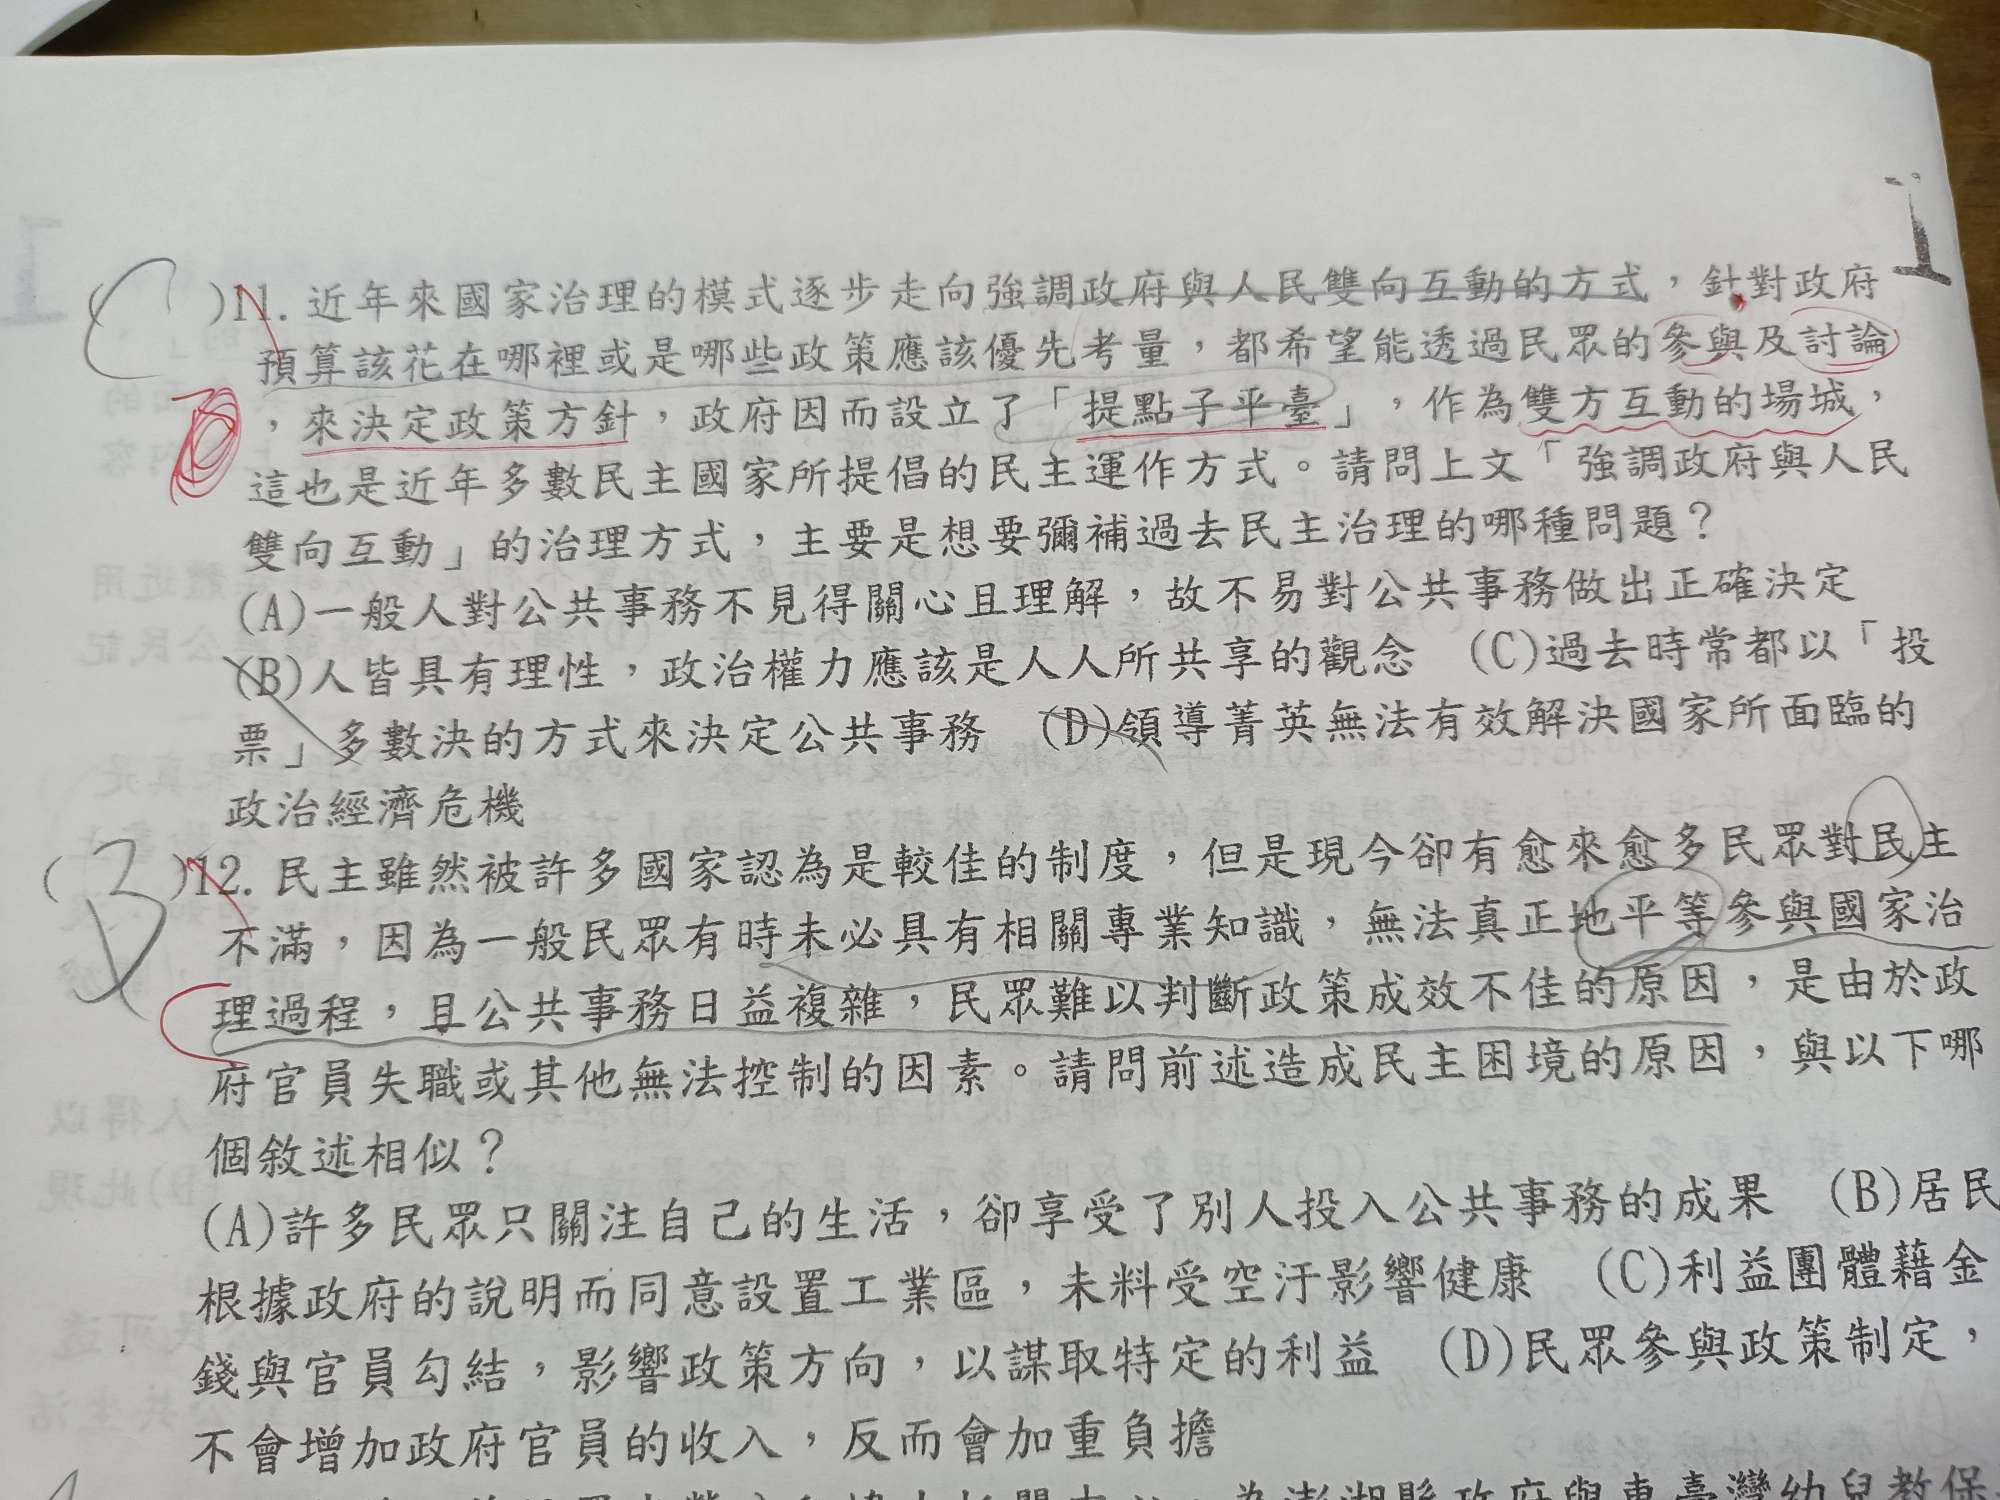 1
(C)11. 近年來國家治理的模式逐步走向強調政府與人民雙向互動的方式，針對政府
預算該花在哪裡或是哪些政策應該優先考量，都希望能透過民眾的參與及討論
，來決定政策方針，政府因而設立了「提點子平臺」，作為雙方互動的場城，
這也是近年多數民主國家所提倡的民主運作方式。請問上文「強調政府與人民
雙向互動」的治理方式，主要是想要彌補過去民主治理的哪種問題？
(A)一般人對公共事務不見得關心且理解，故不易對公共事務做出正確決定
(B)人皆具有理性，政治權力應該是人人所共享的觀念　(C)過去時常都以「投
票」多數決的方式來決定公共事務　(D)領導菁英無法有效解決國家所面臨的
政治經濟危機
(B)12. 民主雖然被許多國家認為是較佳的制度，但是現今卻有愈來愈多民眾對民主
不滿，因為一般民眾有時未必具有相關專業知識，無法真正地平等參與國家治
理過程，且公共事務日益複雜，民眾難以判斷政策成效不佳的原因，是由於政
府官員失職或其他無法控制的因素。請問前述造成民主困境的原因，與以下哪
個敘述相似？
(A)許多民眾只關注自己的生活，卻享受了別人投入公共事務的成果　(B)居民
根據政府的說明而同意設置工業區，未料受空汙影響健康　(C)利益團體藉金
錢與官員勾結，影響政策方向，以謀取特定的利益　(D)民眾參與政策制定，
不會增加政府官員的收入，反而會加重負擔